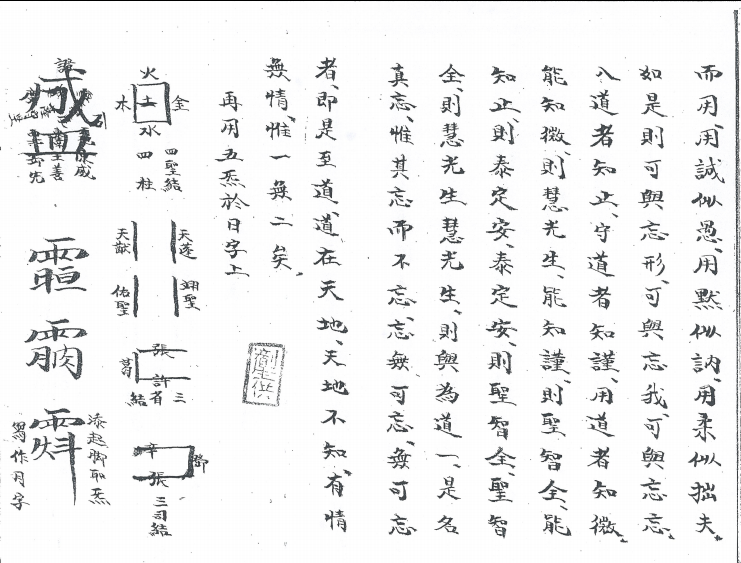 而用、用誠似愚、用默似訥、用柔似拙、夫
如是則可與忘形、可與忘我、可與忘忘、
入道者知止、守道者知謹、用道者知微、
能知微、則慧光生、能知謹、則聖智全、能
知止、則泰定安、泰定安、則聖智全、聖智
全、則慧光生、慧光生、則與為道一、是名
真忘、惟其忘而不忘、忘無可忘、無可忘
者、即是至道、道在天地、天地不知、有情
無情、惟一無二矣、
再用五炁於日字上
火
木 土 金
水
四聖結
四柱
天蓬
天猷
翊聖
佑聖
張
葛 許
三省結
鄧
辛 張
三司結
添起脚取炁